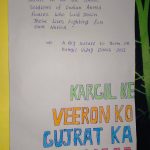 soldiers of Indian Armed
Forces who laid down
Their lives fighting for
our Nation
A Big salute to Them on
Kargil Vijay Diwas 2021
KARGIL KE
VEERON KO
GUJRAT KA